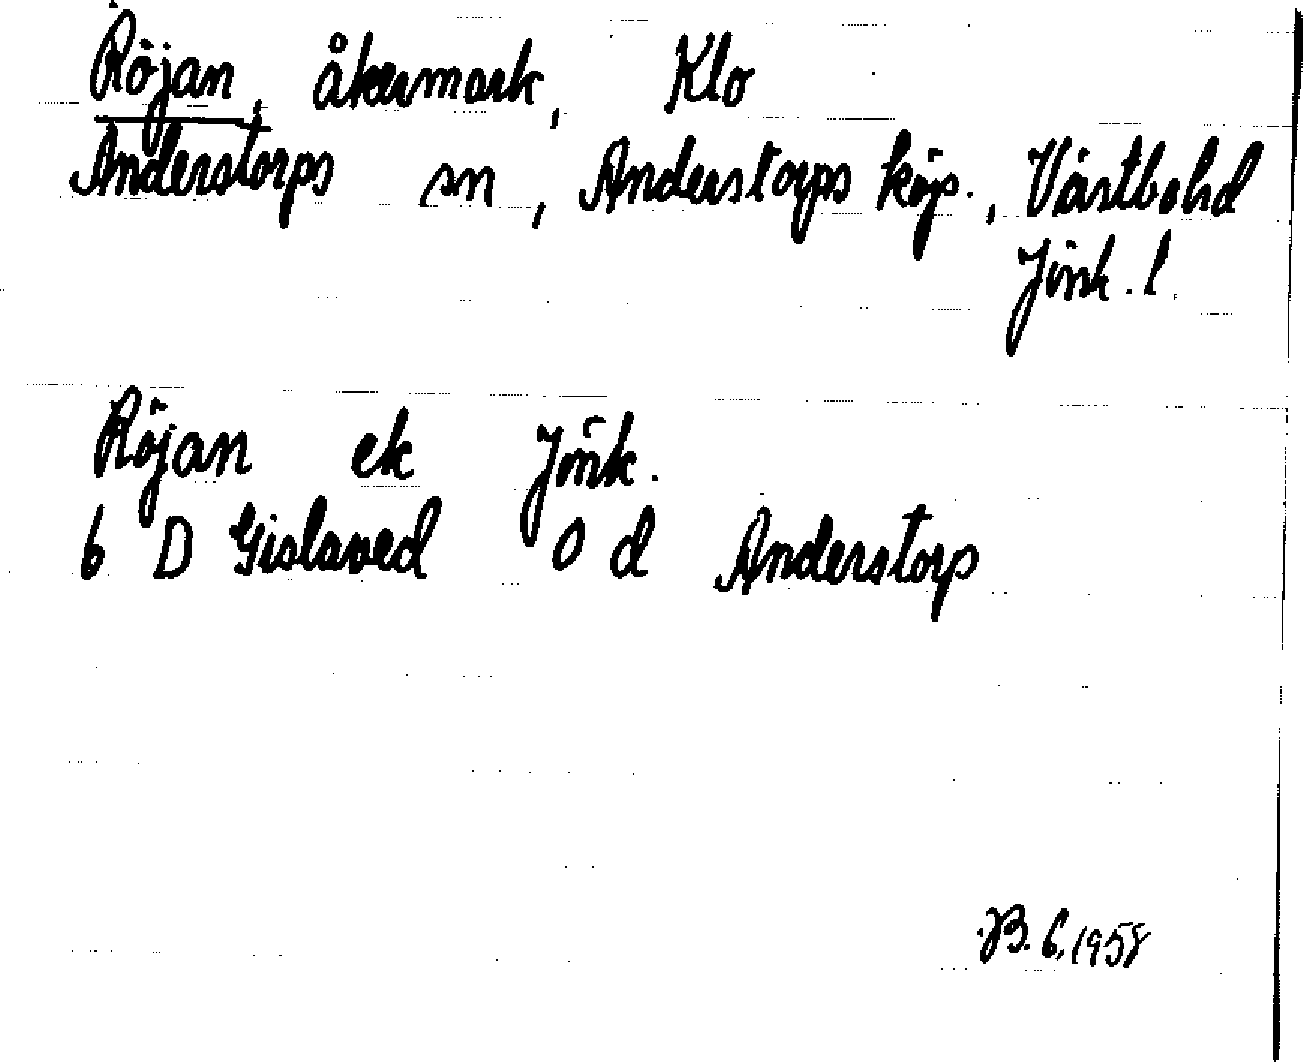 Röjan, åkermark, Klo
Anderstorps sn, Anderstorps köp., Västbohd
Jönk. l.
Röjan ek Jönk.
6 D Gislaved 0 d Anderstorp
B. 6, 1958